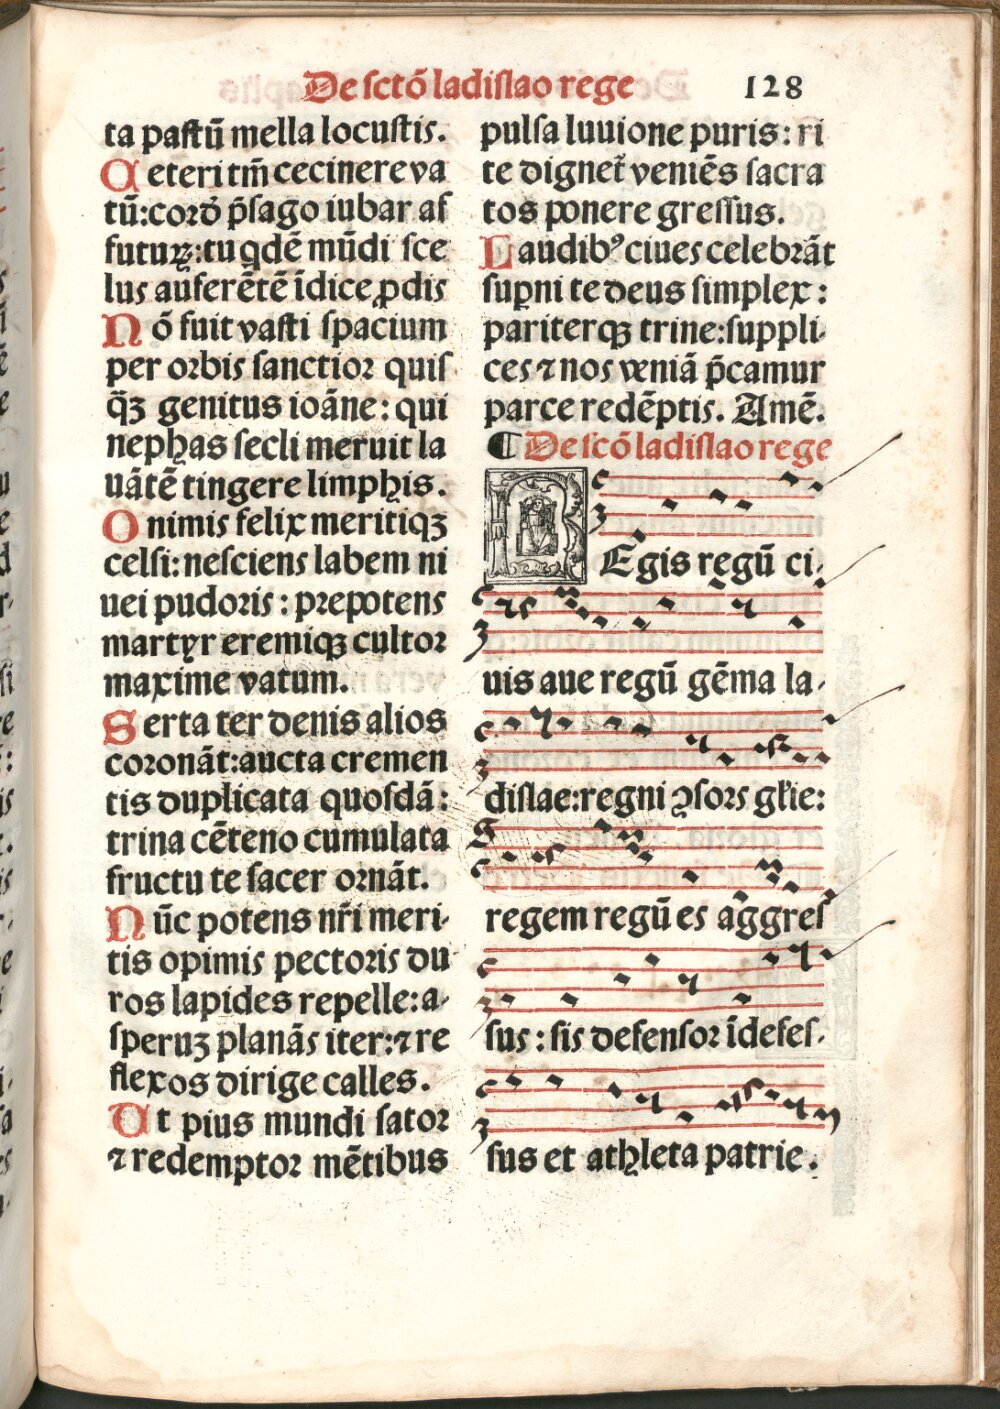 De sctō ladislao rege 128
ta pastū mella locustis.
Ceteri tm̄ cecinere va
tū: cord̄ p̄sago iubar af
futuꝝ: tu qdē mūdi sce
lus auferētē īdice ꝓdis
Nō fuit vasti spacium
per orbis sanctior quis
q̄ꝫ genitus ioāne: qui
nephas secli meruit la
uātē tingere limphis.
O nimis felix meritiqꝫ
celsi: nesciens labem ni
uei pudoris: prepotens
martyr eremiqꝫ cultor
maxime vatum.
Serta ter denis alios
coronāt: aucta cremen
tis duplicata quosdā:
trina cēteno cumulata
fructu te sacer ornāt.
Nūc potens nr̄i meri-
tis opimis pectoris du
ros lapides repelle: a-
speruꝫ planās iter: ⁊ re
flexos dirige calles.
Ut pius mundi sator
⁊ redemptor mētibus
pulsa luuione puris: ri
te dignet᷑ veniēs sacra
tos ponere gressus.
Laudibꝰ ciues celebrāt
suꝑni te deus simplex:
pariterqꝫ trine: suppli-
ces ⁊ nos veniā p̄camur
parce redēptis. Amē.
¶ De scō ladislao rege
REgis regū ci-
uis aue regū gēma la-
dislae: regni ꝯsors gl̄ie:
regem regū es aggres
sus: sis defensor īdefes-
sus et athleta patrie.